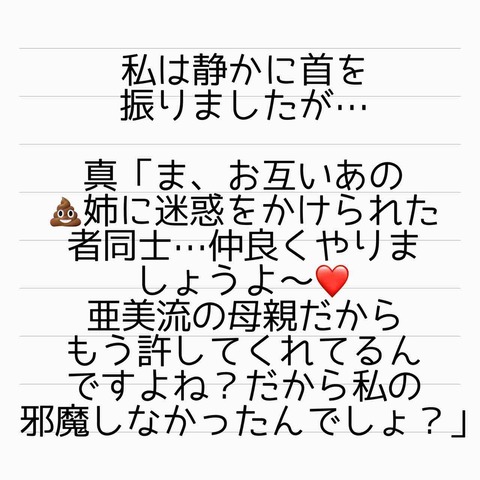 私は静かに首を
振りましたが…
真「ま、お互いあの
💩姉に迷惑をかけられた
者同士…仲良くやりま
しょうよ～❤️
亜美流の母親だから
もう許してくれてるん
ですよね？だから私の
邪魔しなかったんでしょ？」